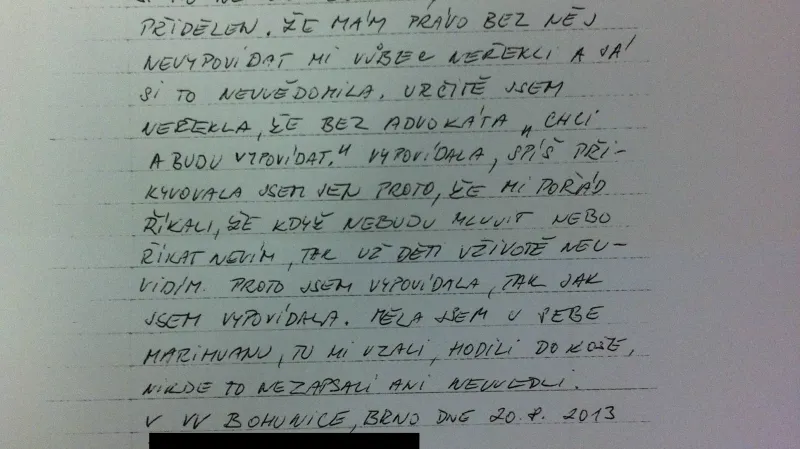 PŘIDĚLEN. ŽE MÁM PRÁVO BEZ NĚJ
NEVYPOVÍDAT MI VŮBEC NEŘEKLI A JÁ
SI TO NEUVĚDOMILA. URČITĚ JSEM
NEŘEKLA, ŽE BEZ ADVOKÁTA „CHCI
A BUDU VYPOVÍDAT." VYPOVÍDALA, SPÍŠ PŘI-
KYVOVALA JSEM JEN PROTO, ŽE MI POŘÁD
ŘÍKALI, ŽE KDYŽ NEBUDU MLUVIT NEBO
ŘÍKAT NEVÍM, TAK UŽ DĚTI VŽIVOTĚ NEU-
VIDÍM. PROTO JSEM VYPOVÍDALA, TAK JAK
JSEM VYPOVÍDALA. MĚLA JSEM U SEBE
MARIHUANU, TU MI VZALI, HODILI DO KOŠE,
NIKDE TO NEZAPSALI ANI NEUVEDLI.
V VV BOHUNICE, BRNO DNE 20.8. 2013